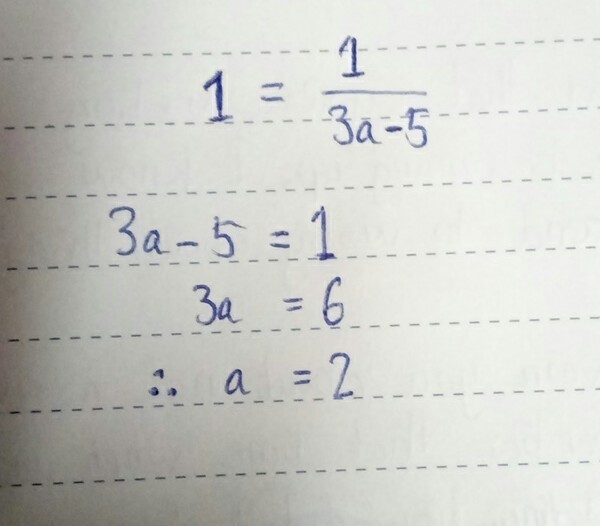 1 = 1/(3a-5)
3a - 5 = 1
3a = 6
∴ a = 2